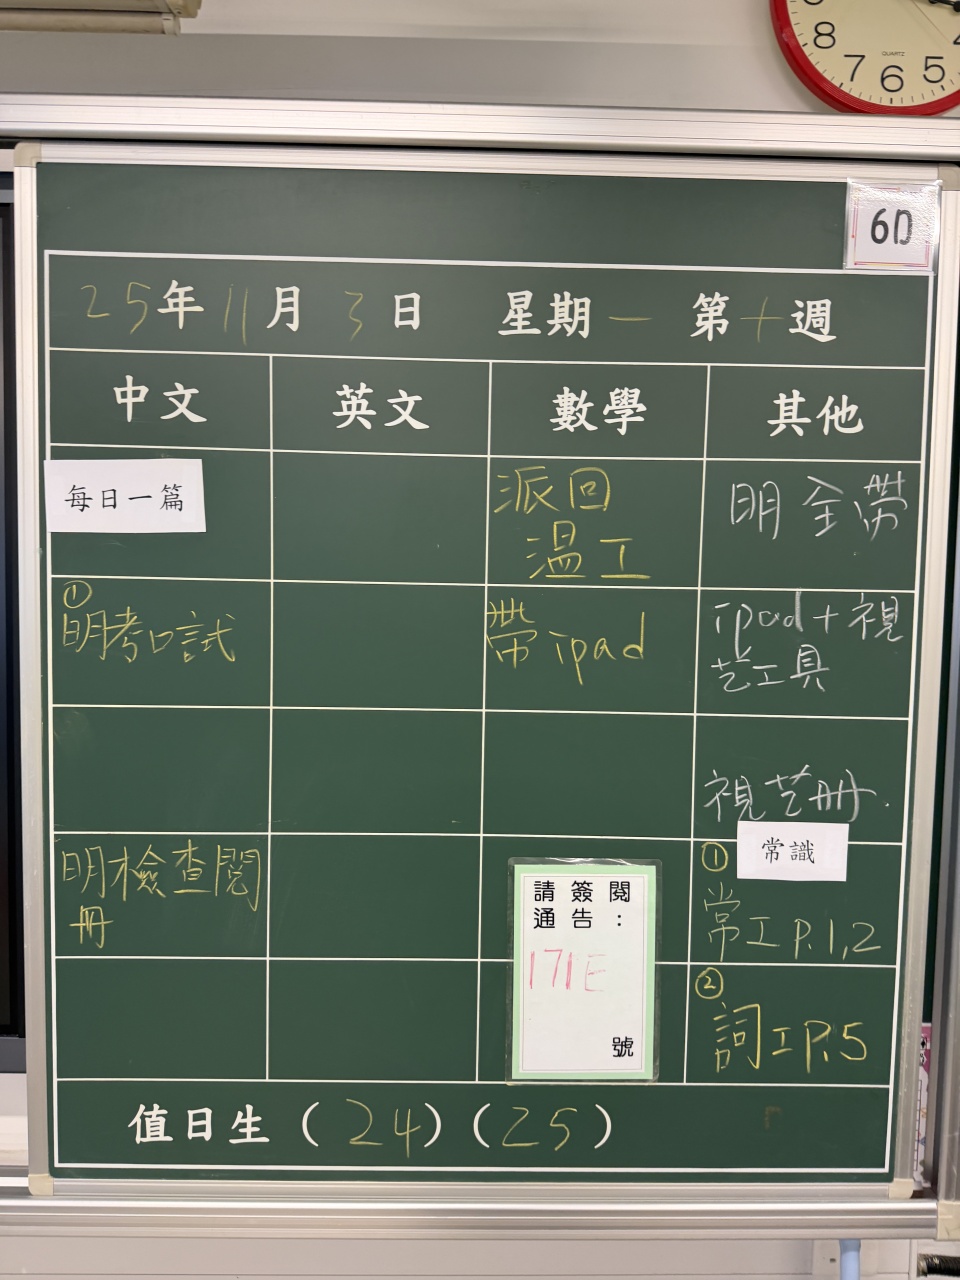 8
7
6
5
QUARTZ
6D
25年11月3日 星期一 第十週
中文 英文 數學 其他
每日一篇
派回
溫工
明全帶
①
明考口試
帶ipad
ipad+視
艺工具
視艺册.
明檢查閱
册
請簽閱
通告:
171E
號
常識
①
常工P.1,2
②
詞工P.5
值日生(24)(25)